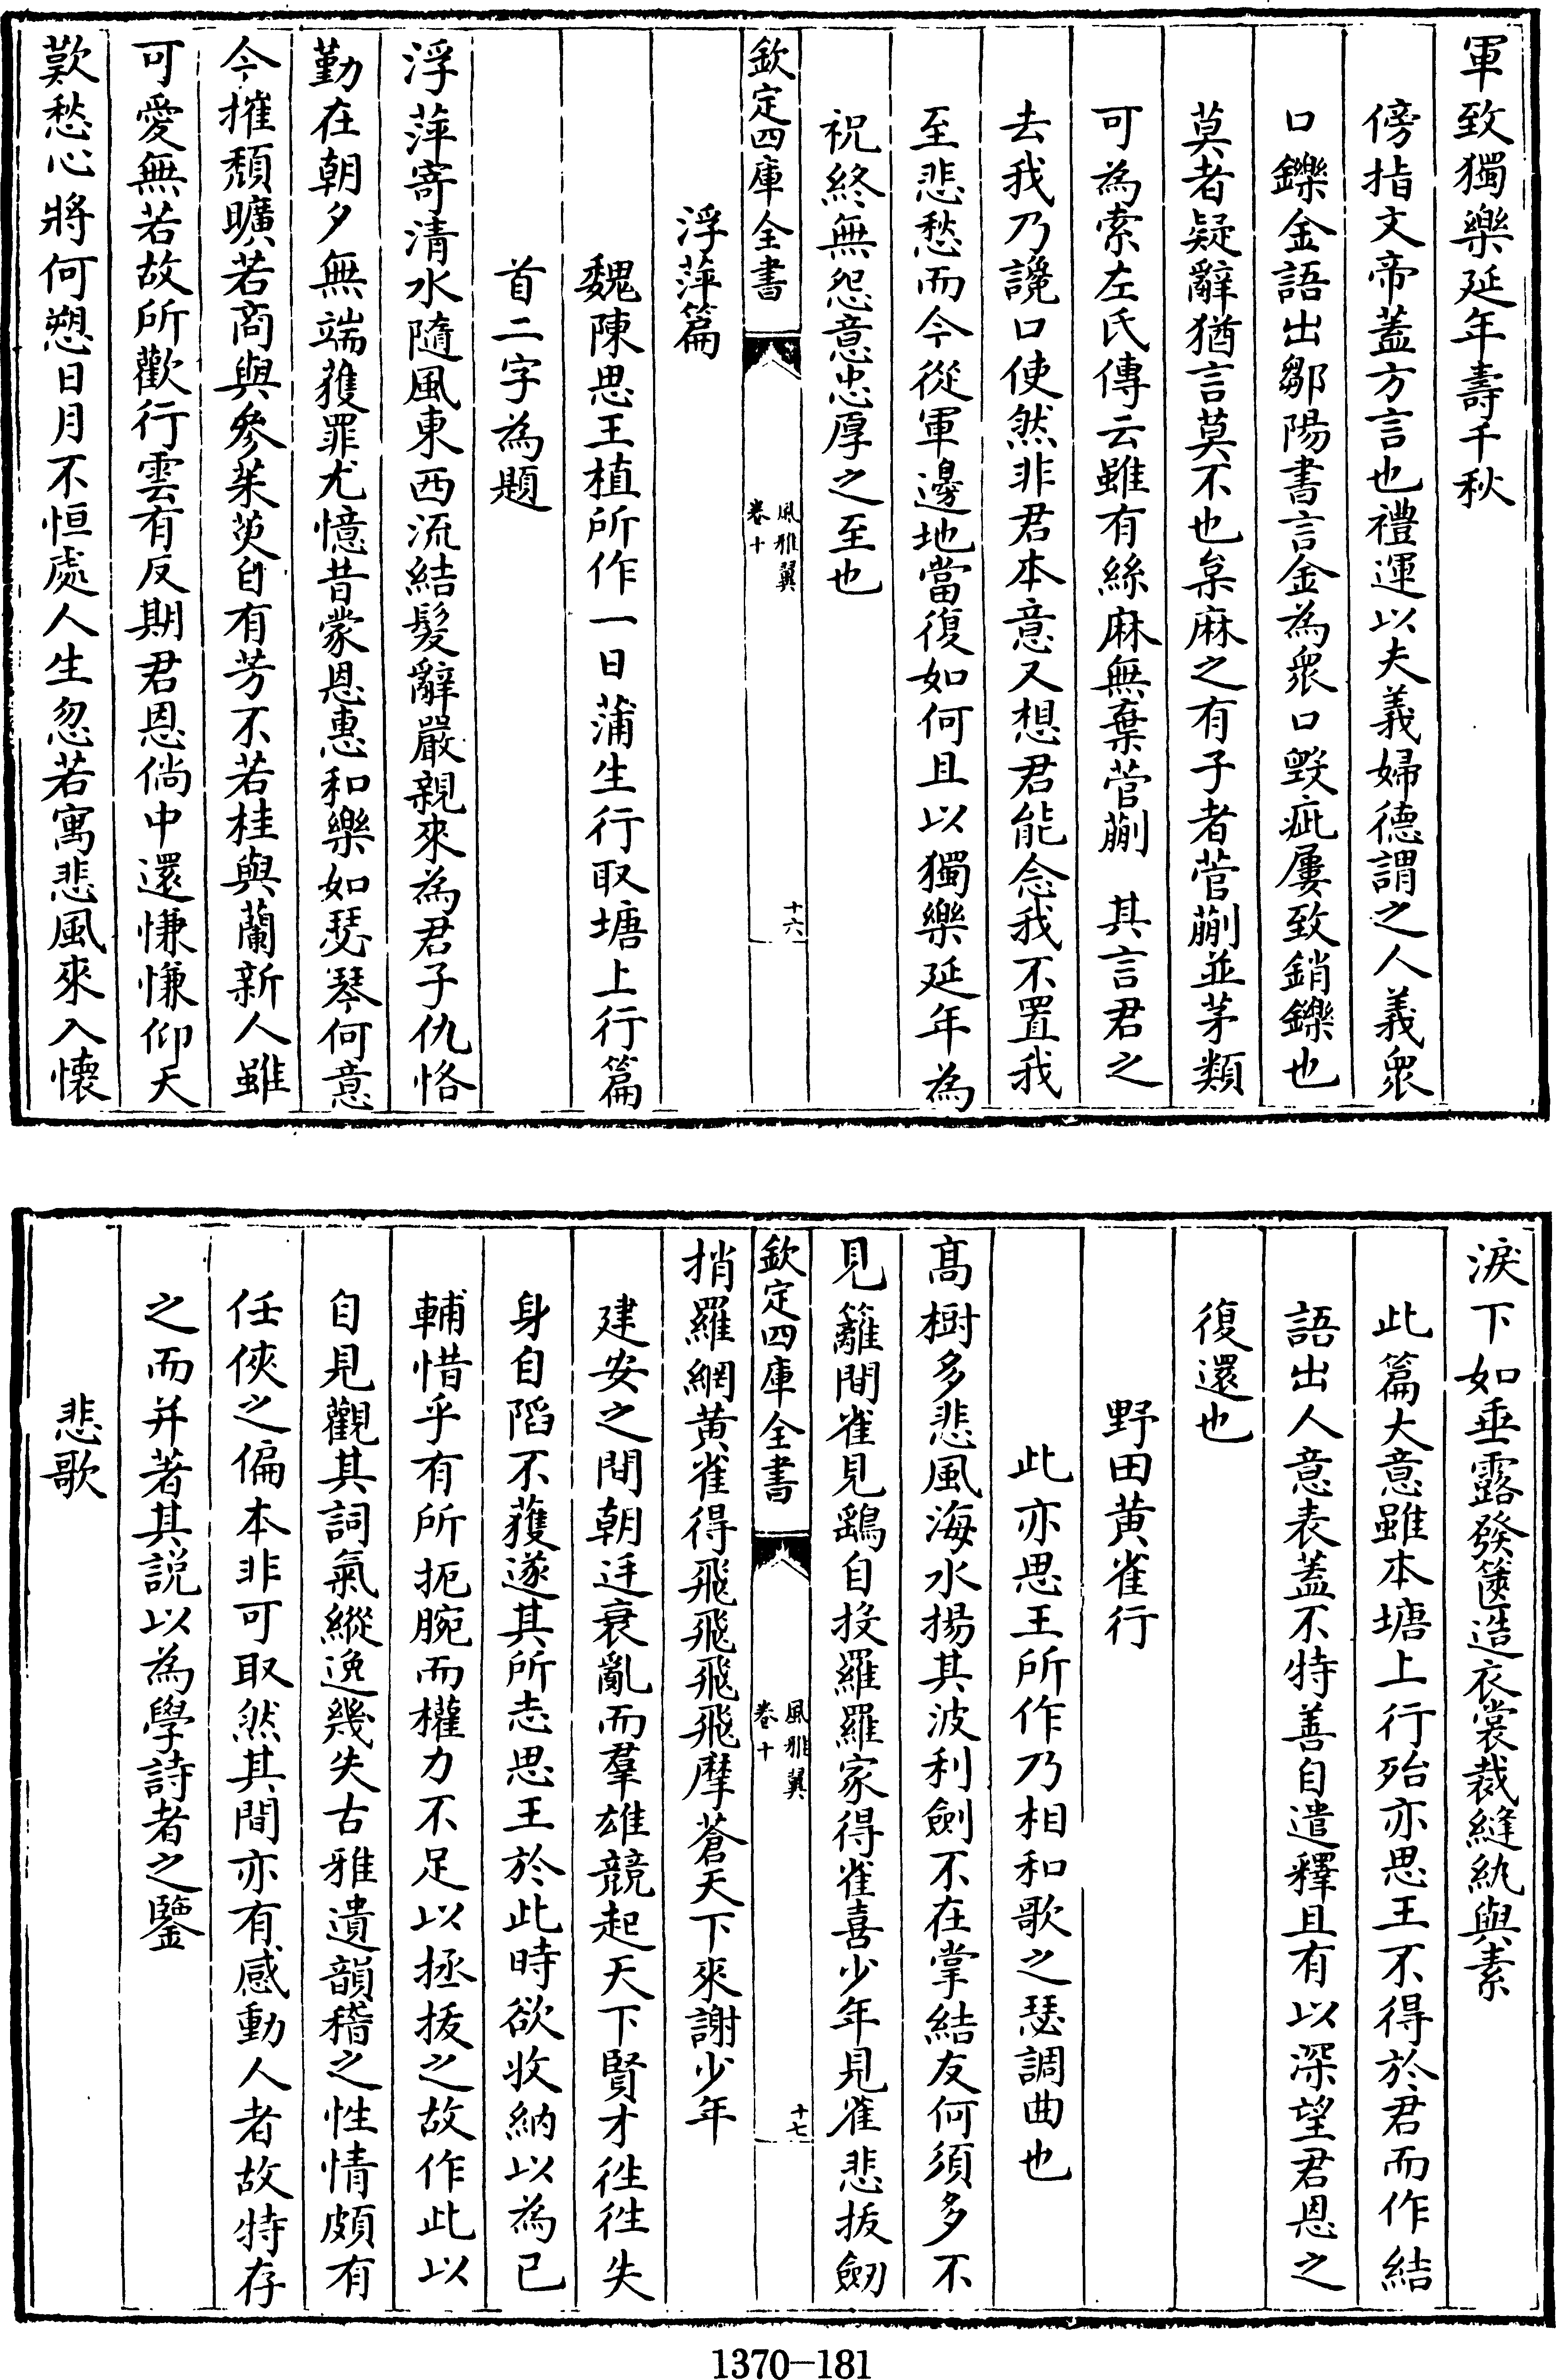 軍致獨樂延年壽千秋
傍指文帝蓋方言也禮運以夫義婦德謂之人義衆
口鑠金語出鄒陽書言金為衆口毀疵屢致銷鑠也
莫者疑辭猶言莫不也枲麻之有子者菅蒯並茅類
可為索左氏傳云雖有絲麻無棄菅蒯 其言君之
去我乃讒口使然非君本意又想君能念我不置我
至悲愁而今從軍邊地當復如何且以獨樂延年為
祝終無怨意忠厚之至也
欽定四庫全書
風雅翼
卷十
十六
浮萍篇
魏陳思王植所作一曰蒲生行取塘上行篇
首二字為題
浮萍寄清水隨風東西流結髮辭嚴親來為君子仇恪
勤在朝夕無端獲罪尤憶昔蒙恩惠和樂如瑟琴何意
今摧頹曠若商與參茱萸自有芳不若桂與蘭新人雖
可愛無若故所歡行雲有反期君恩倘中還慊慊仰天
歎愁心將何愬日月不恒處人生忽若寓悲風來入懷
淚下如垂露發篋造衣裳裁縫紈與素
此篇大意雖本塘上行殆亦思王不得於君而作結
語出人意表蓋不特善自遣釋且有以深望君恩之
復還也
野田黄雀行
此亦思王所作乃相和歌之瑟調曲也
髙樹多悲風海水揚其波利劍不在掌結友何須多不
見籬間雀見鷂自投羅羅家得雀喜少年見雀悲拔劒
欽定四庫全書
風雅翼
卷十
十七
捎羅網黄雀得飛飛飛飛摩蒼天下來謝少年
建安之間朝廷衰亂而羣雄競起天下賢才徃徃失
身自䧟不獲遂其所志思王於此時欲收納以為己
輔惜乎有所扼腕而權力不足以拯拔之故作此以
自見觀其詞氣縱逸幾失古雅遺韻稽之性情頗有
任俠之偏本非可取然其間亦有感動人者故特存
之而并著其説以為學詩者之鑒
悲歌
1370-181